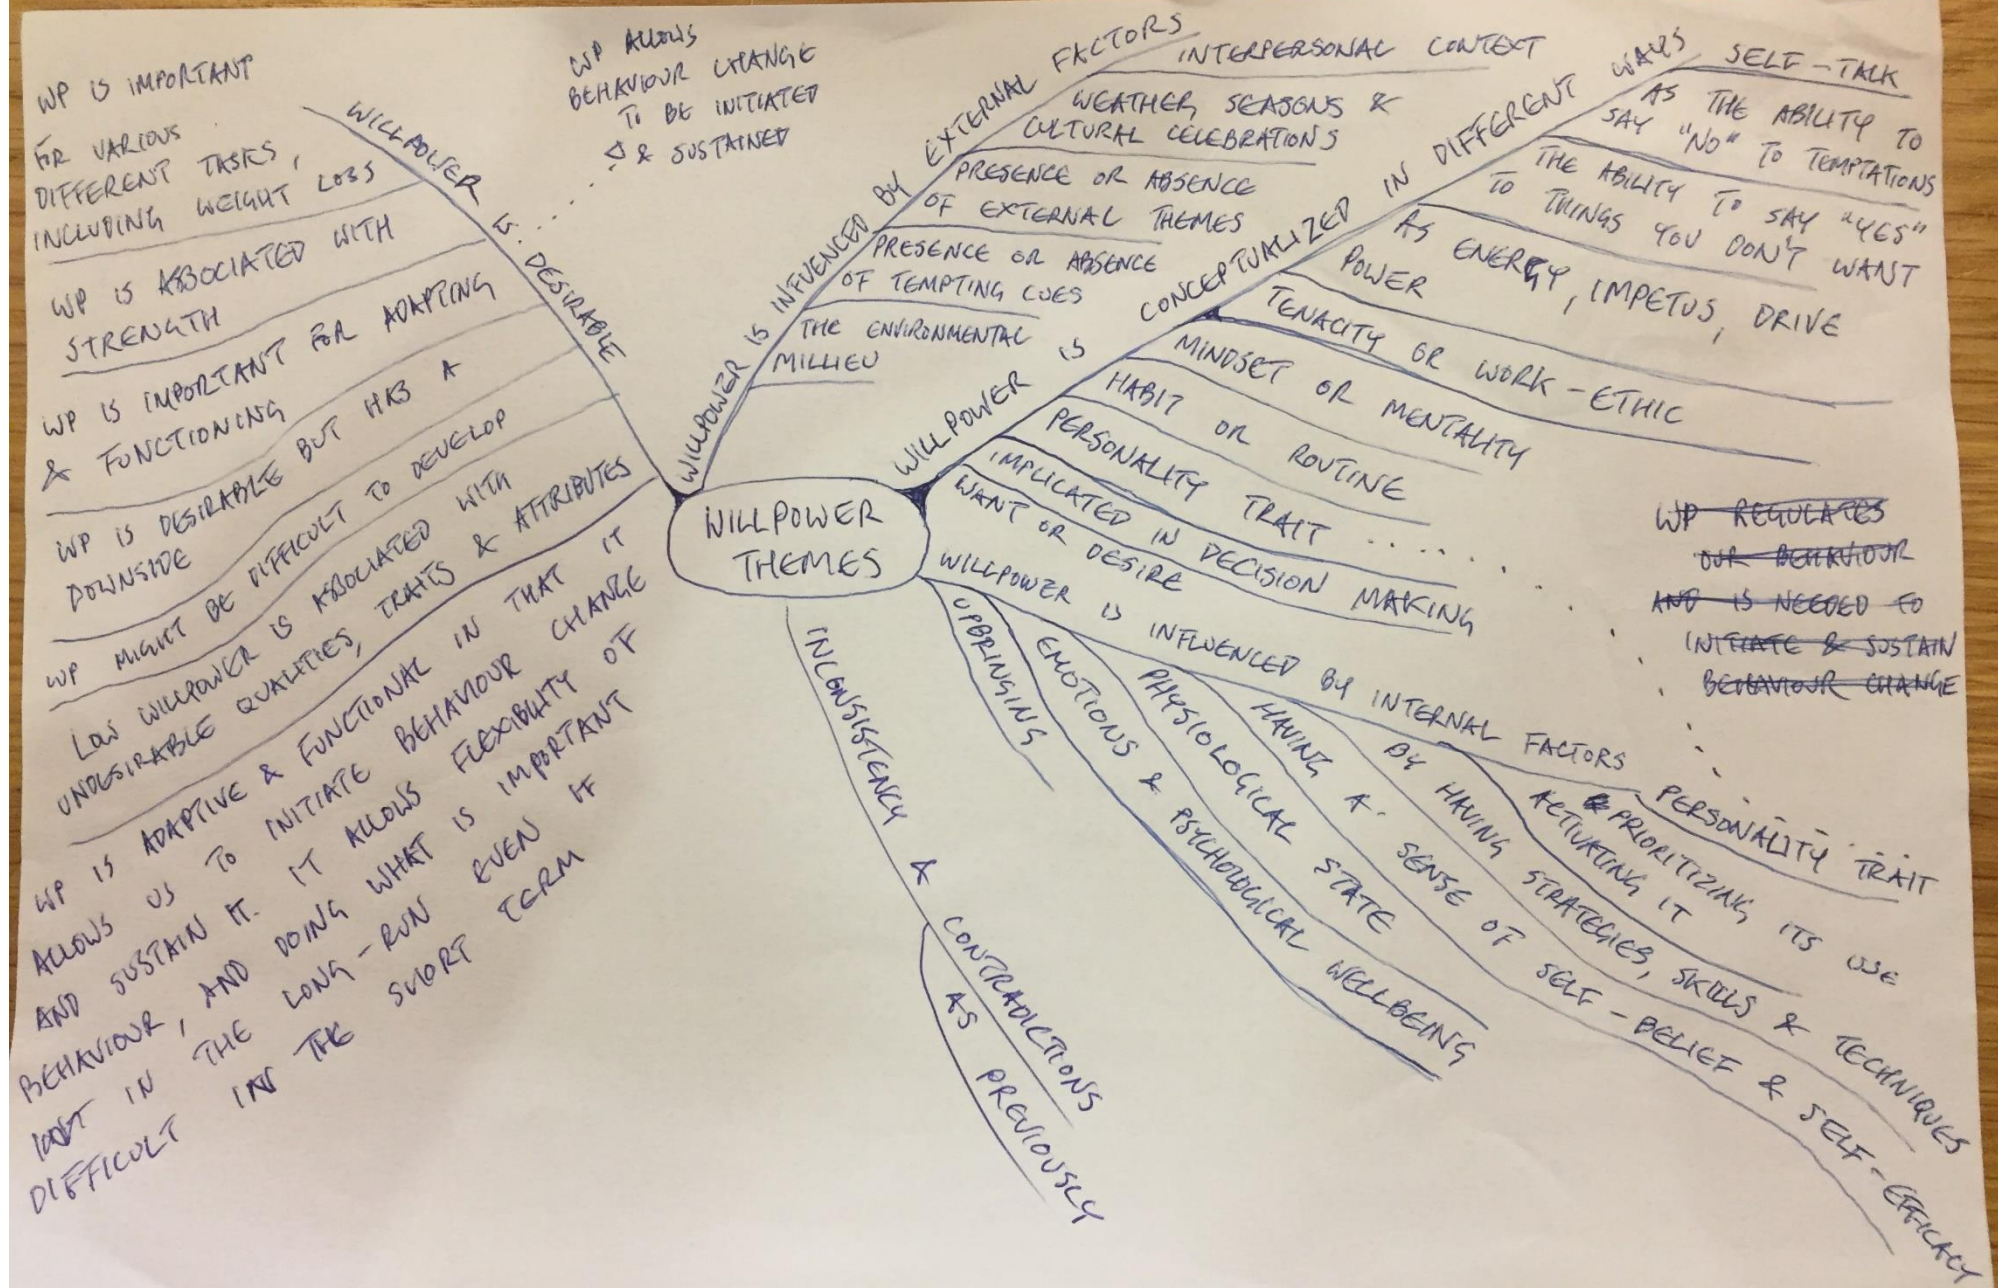 WILLPOWER
THEMES
WILLPOWER IS DESIRABLE
WP IS IMPORTANT
FOR VARIOUS
DIFFERENT TASKS,
INCLUDING WEIGHT LOSS
WP IS ASSOCIATED WITH
STRENGTH
WP IS IMPORTANT FOR ADAPTING
& FUNCTIONING
WP IS DESIRABLE BUT HAS A
DOWNSIDE
WP MIGHT BE DIFFICULT TO DEVELOP
LOW WILLPOWER IS ASSOCIATED WITH
UNDESIRABLE QUALITIES, TRAITS & ATTRIBUTES
WP IS ADAPTIVE & FUNCTIONAL IN THAT IT
ALLOWS US TO INITIATE BEHAVIOUR CHANGE
AND SUSTAIN IT. IT ALLOWS FLEXIBILITY OF
BEHAVIOUR, AND DOING WHAT IS IMPORTANT
IN THE LONG-RUN EVEN IF
DIFFICULT IN THE SHORT TERM
WP ALLOWS
BEHAVIOUR CHANGE
TO BE INITIATED
& SUSTAINED
WILLPOWER IS INFUENCED BY EXTERNAL FACTORS
INTERPERSONAL CONTEXT
WEATHER, SEASONS &
CULTURAL CELEBRATIONS
PRESENCE OR ABSENCE
OF EXTERNAL THEMES
PRESENCE OR ABSENCE
OF TEMPTING CUES
THE ENVIRONMENTAL
MILLIEU
WILLPOWER IS CONCEPTUALIZED IN DIFFERENT WAYS
SELF-TALK
AS THE ABILITY TO
SAY "NO" TO TEMPTATIONS
THE ABILITY TO SAY "YES"
TO THINGS YOU DON'T WANT
AS ENERGY, IMPETUS, DRIVE
POWER
TENACITY OR WORK-ETHIC
MINDSET OR MENTALITY
HABIT OR ROUTINE
PERSONALITY TRAIT
IMPLICATED IN DECISION MAKING
WANT OR DESIRE
WP REGULATES
OUR BEHAVIOUR
AND IS NEEDED TO
INITIATE & SUSTAIN
BEHAVIOUR CHANGE
WILLPOWER IS INFLUENCED BY INTERNAL FACTORS
PERSONALITY TRAIT
PRIORITIZING ITS USE
ACTIVATING IT
BY HAVING STRATEGIES, SKILLS & TECHNIQUES
HAVING A SENSE OF SELF-BELIEF & SELF-EFFICACY
PHYSIOLOGICAL STATE
EMOTIONS & PSYCHOLOGICAL WELLBEING
UPBRINGING
INCONSISTENCY & CONTRADICTIONS
AS PREVIOUSLY